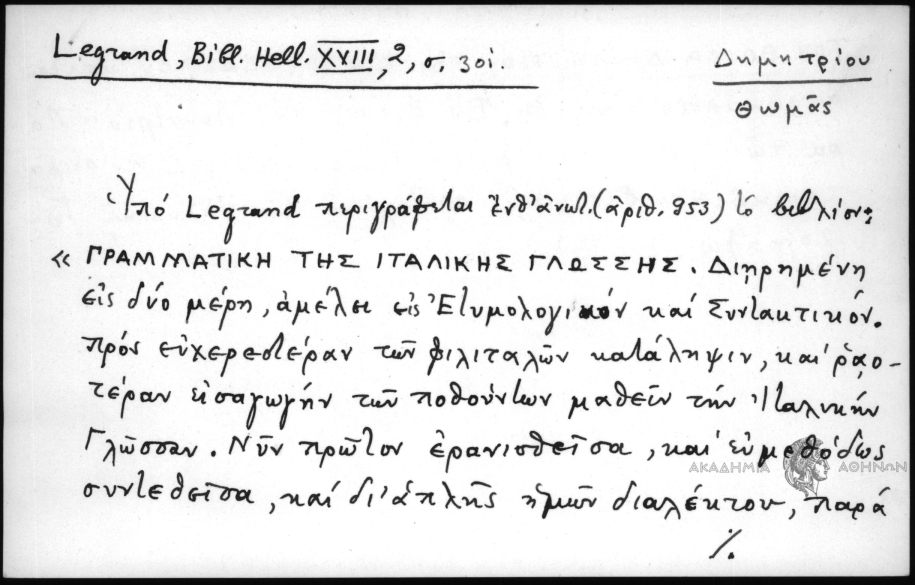 Legrand, Bibl. Hell. XVIII, 2, σ. 301.
Δημητρίου
Θωμᾶς
Ὑπό Legrand περιγράφεται ἐνθ' ἀνωτ. (ἀριθ. 953) τό βιβλίον:
« ΓΡΑΜΜΑΤΙΚΗ ΤΗΣ ΙΤΑΛΙΚΗΣ ΓΛΩΣΣΗΣ. Διῃρημένη
εἰς δύο μέρη, ἀμέλει εἰς Ἐτυμολογικόν καί Συντακτικόν.
πρός εὐχερεστέραν τῶν φιλιταλῶν κατάληψιν, καί ῥᾳο-
τέραν εἰσαγωγήν τῶν ποθούντων μαθεῖν τήν Ἰταλικήν
Γλῶσσαν. Νῦν πρῶτον ἐρανισθεῖσα, καί εὐμεθόδως
ΑΚΑΔΗΜΙΑ ΑΘΗΝΩΝ
συντεθεῖσα, καί δι' ἁπλῆς ἡμῶν διαλέκτου, παρά
·/.